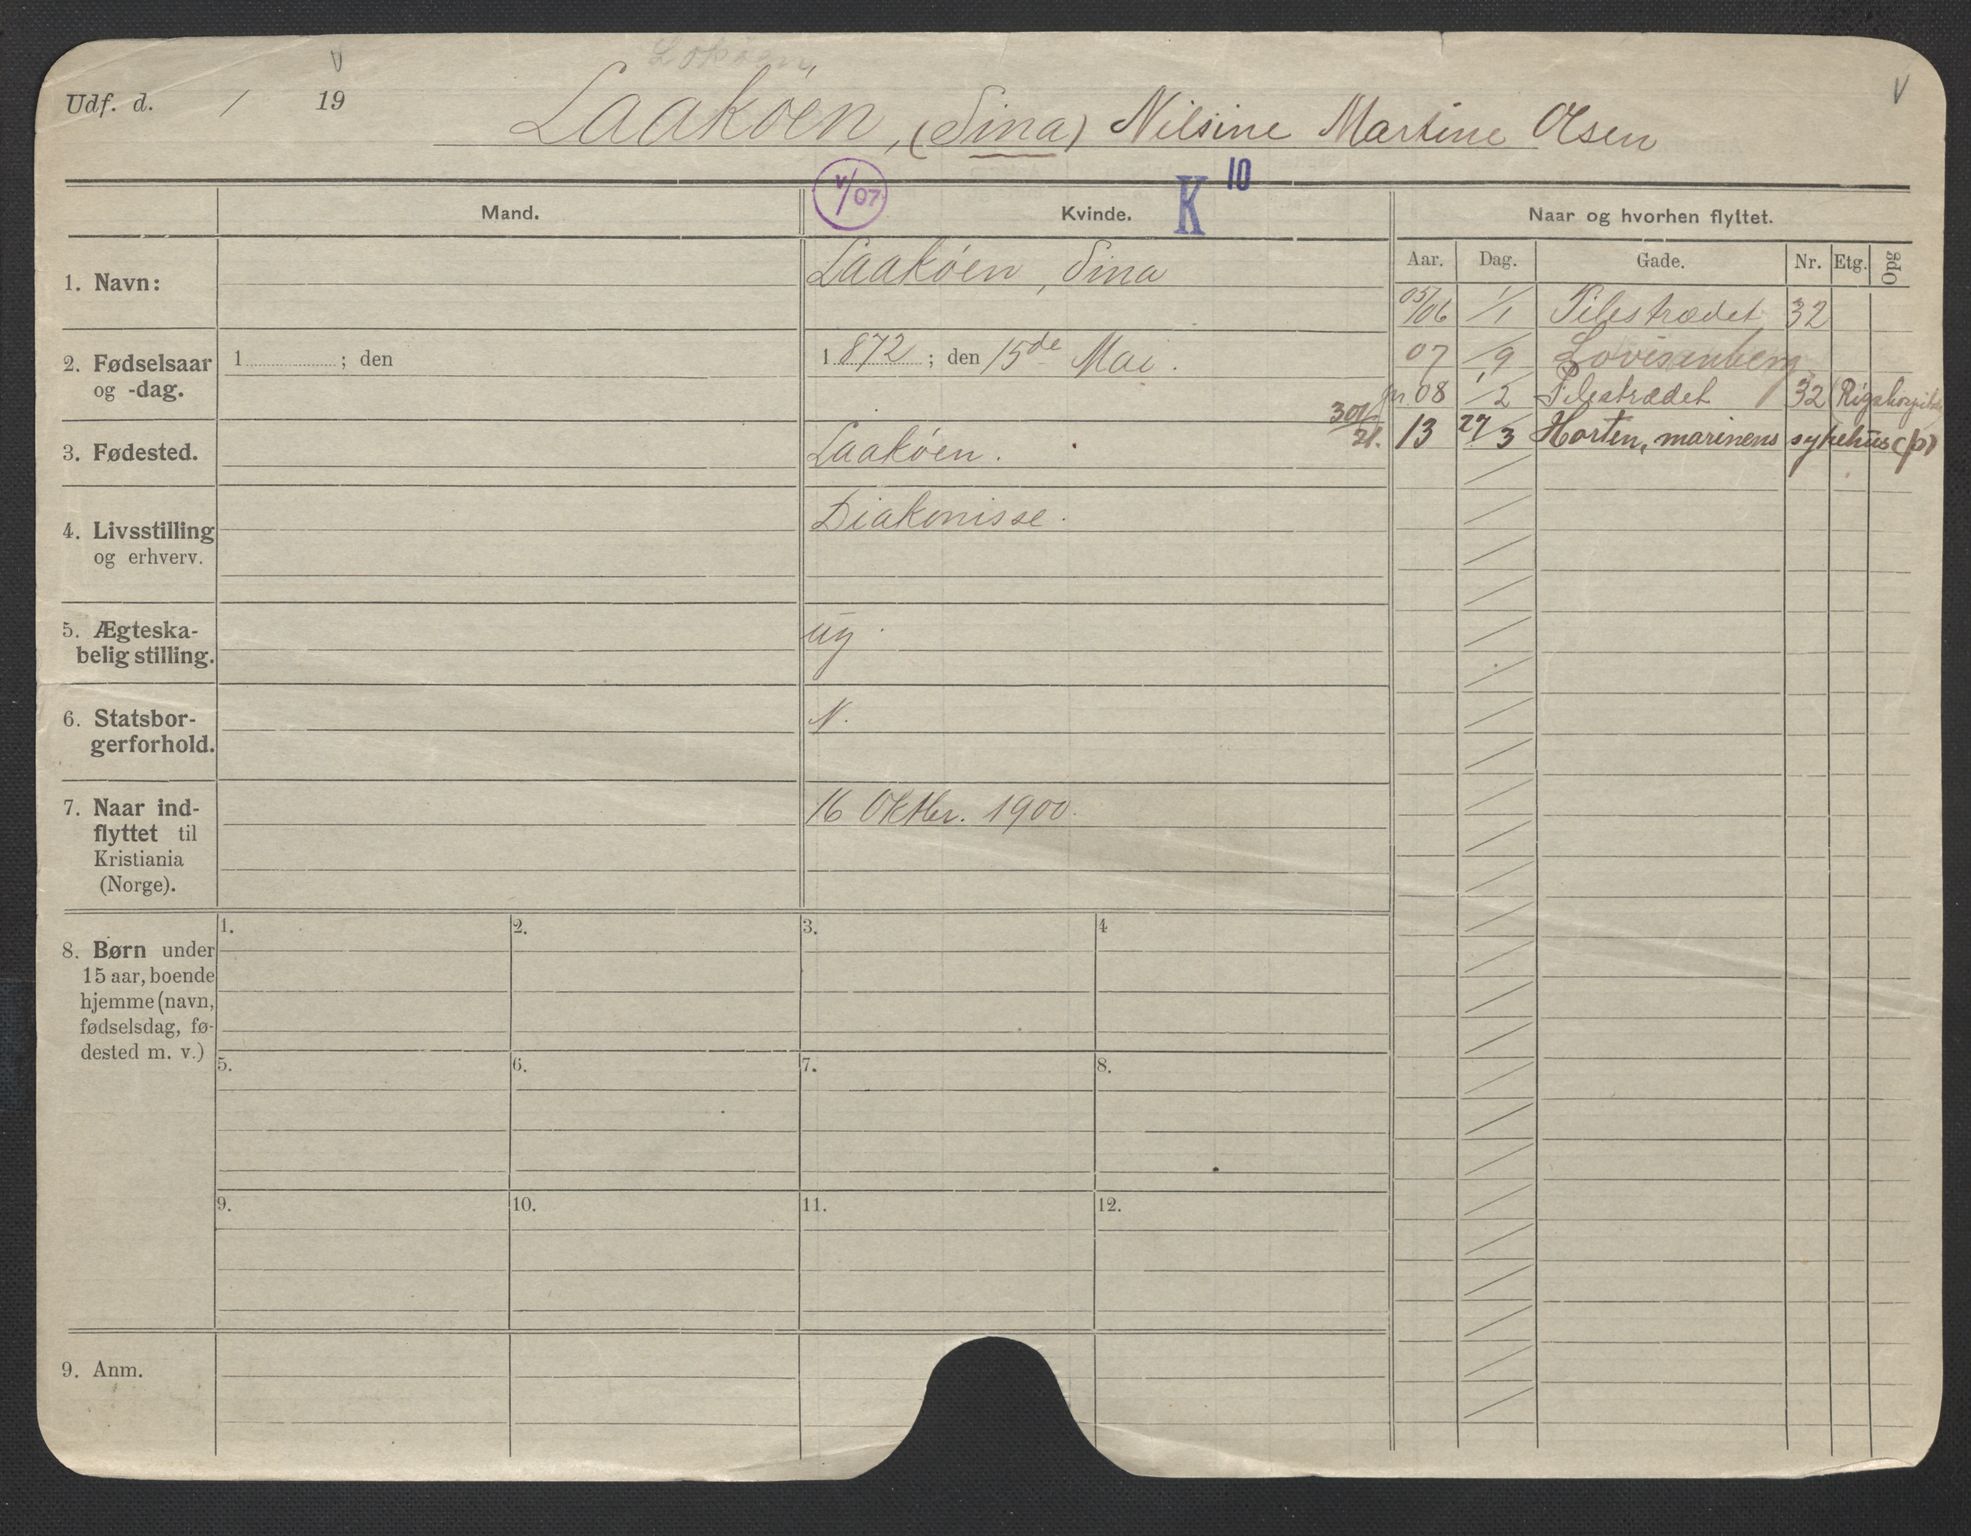 Lokøen
Udf. d. / 19 Laakøen, (Sina) Nilsine Martine Olsen
V/07 K 10
Mand. Kvinde. Naar og hvorhen flyttet.
Aar. Dag. Gade. Nr. Etg. Opg
1. Navn: Laakøen, Sina
05/06 1/1 Pilestrædet 32
2. Fødselsaar og -dag. 1 ; den 1872 ; den 15de Mai.
07 /9 Lovisenberg
08 1/2 Pilestrædet 32 (Rigshospitalet
301/21. 13 27/3 Horten, marinens sykehus (p)
3. Fødested. Laakøen.
4. Livsstilling og erhverv. Diakonisse.
5. Ægteska-
belig stilling. ug.
6. Statsbor-
gerforhold. N.
7. Naar ind-
flyttet til
Kristiania
(Norge). 16 Oktbr. 1900.
8. Børn under
15 aar, boende
hjemme (navn,
fødselsdag, fø-
dested m. v.)
1. 2. 3. 4
5. 6. 7. 8.
9. 10. 11. 12.
9. Anm.